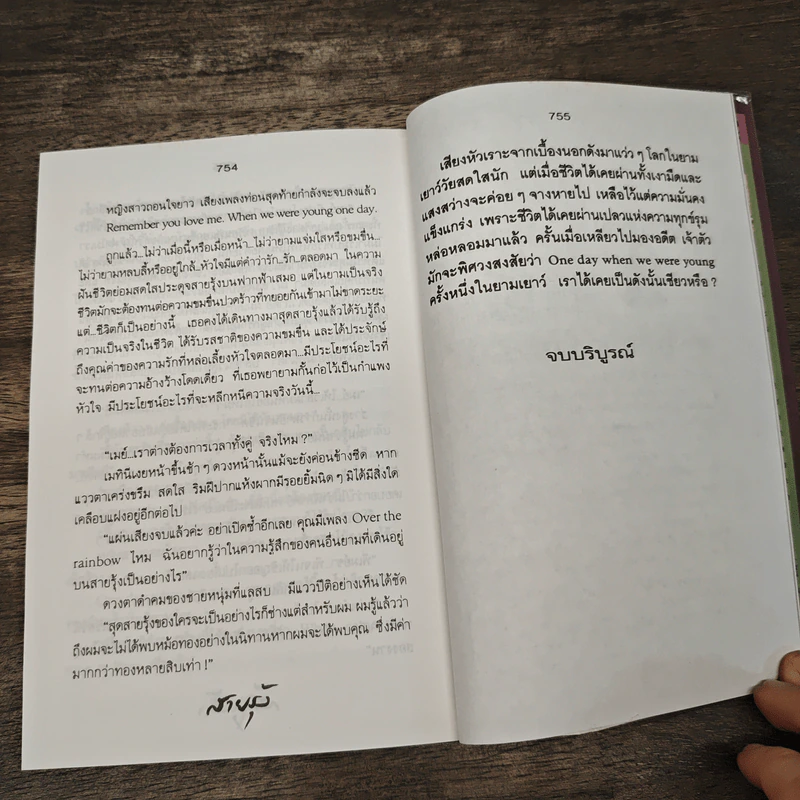 754
หญิงสาวถอนใจยาว เสียงเพลงท่อนสุดท้ายกำลังจะจบลงแล้ว
Remember you love me. When we were young one day.
ถูกแล้ว...ไม่ว่าเมื่อนี้หรือเมื่อหน้า...ไม่ว่ายามแจ่มใสหรือขมขื่น...
ไม่ว่ายามหลบลี้หรืออยู่ใกล้..หัวใจมีแต่คำว่ารัก..รัก..ตลอดมา ในความ
ฝันชีวิตย่อมสดใสประดุจสายรุ้งบนฟากฟ้าเสมอ แต่ในยามเป็นจริง
ชีวิตมักจะต้องทนต่อความขมขื่นปวดร้าวที่ทยอยกันเข้ามาไม่ขาดระยะ
แต่...ชีวิตก็เป็นอย่างนี้ เธอคงได้เดินทางมาสุดสายรุ้งแล้วได้รับรู้ถึง
ความเป็นจริงในชีวิต ได้รับรสชาติของความขมขื่น และได้ประจักษ์
ถึงคุณค่าของความรักที่หล่อเลี้ยงหัวใจตลอดมา...มีประโยชน์อะไรที่
จะทนต่อความอ้างว้างโดดเดี่ยว ที่เธอพยายามกั้นก่อไว้เป็นกำแพง
หัวใจ มีประโยชน์อะไรที่จะหลีกหนีความจริงวันนี้...
“เมย์...เราต่างต้องการเวลาทั้งคู่ จริงไหม ?”
เมทินีเงยหน้าขึ้นช้า ๆ ดวงหน้านั้นแม้จะยังค่อนข้างซีด หาก
แววตาเคร่งขรึม สดใส ริมฝีปากแห้งผากมีรอยยิ้มนิด ๆ มิได้มีสิ่งใด
เคลือบแฝงอยู่อีกต่อไป
“แผ่นเสียงจบแล้วค่ะ อย่าเปิดซ้ำอีกเลย คุณมีเพลง Over the
rainbow ไหม ฉันอยากรู้ว่าในความรู้สึกของคนอื่นยามที่เดินอยู่
บนสายรุ้งเป็นอย่างไร”
ดวงตาดำคมของชายหนุ่มที่แลสบ มีแววปีติอย่างเห็นได้ชัด
“สุดสายรุ้งของใครจะเป็นอย่างไรก็ช่างแต่สำหรับผม ผมรู้แล้วว่า
ถึงผมจะไม่ได้พบหม้อทองอย่างในนิทานหากผมจะได้พบคุณ ซึ่งมีค่า
มากกว่าทองหลายสิบเท่า !”
สายรุ้ง
755
เสียงหัวเราะจากเบื้องนอกดังมาแว่ว ๆ โลกในยาม
เยาว์วัยสดใสนัก แต่เมื่อชีวิตได้เคยผ่านทั้งเงามืดและ
แสงสว่างจะค่อย ๆ จางหายไป เหลือไว้แต่ความมั่นคง
แข็งแกร่ง เพราะชีวิตได้เคยผ่านเปลวแห่งความทุกข์รุม
หล่อหลอมมาแล้ว ครั้นเมื่อเหลียวไปมองอดีต เจ้าตัว
มักจะพิศวงสงสัยว่า One day when we were young
ครั้งหนึ่งในยามเยาว์ เราได้เคยเป็นดังนั้นเชียวหรือ ?
จบบริบูรณ์